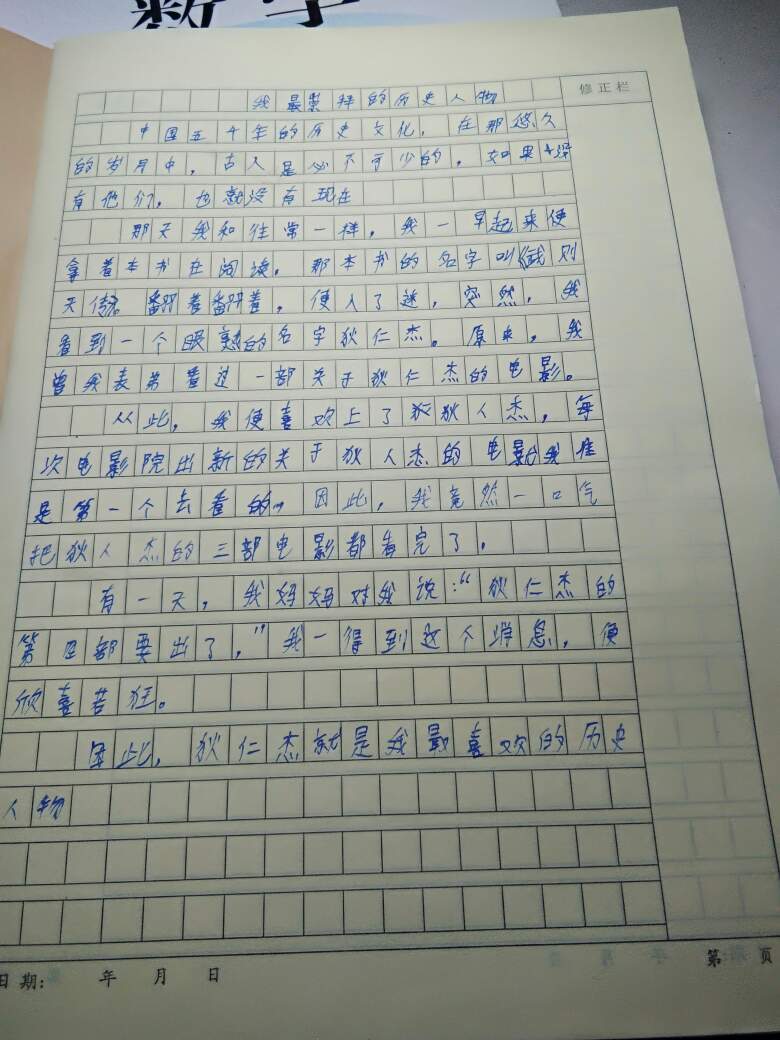 数学
修正栏
我最崇拜的历史人物
中国五千年的历史文化，在那悠久
的岁月中，古人是必不可少的，如果没
有他们，也就没有现在
那天我和往常一样，我一早起来便
拿着本书在阅读，那本书的名字叫《武则
天传》翻着翻着，便入了迷，突然，我
看到一个眼熟的名字狄仁杰。原来，我
曾我表弟看过一部关于狄仁杰的电影。
从此，我便喜欢上了狄人杰，每
次电影院出新的关于狄人杰的电影我准
是第一个去看的，因此，我竟然一口气
把狄人杰的三部电影都看完了，
有一天，我妈妈对我说：“狄仁杰的
第四部要出了，”我一得到这个消息，便
欣喜若狂。
因此，狄仁杰就是我最喜欢的历史
人物
日期: 年 月 日
第 页